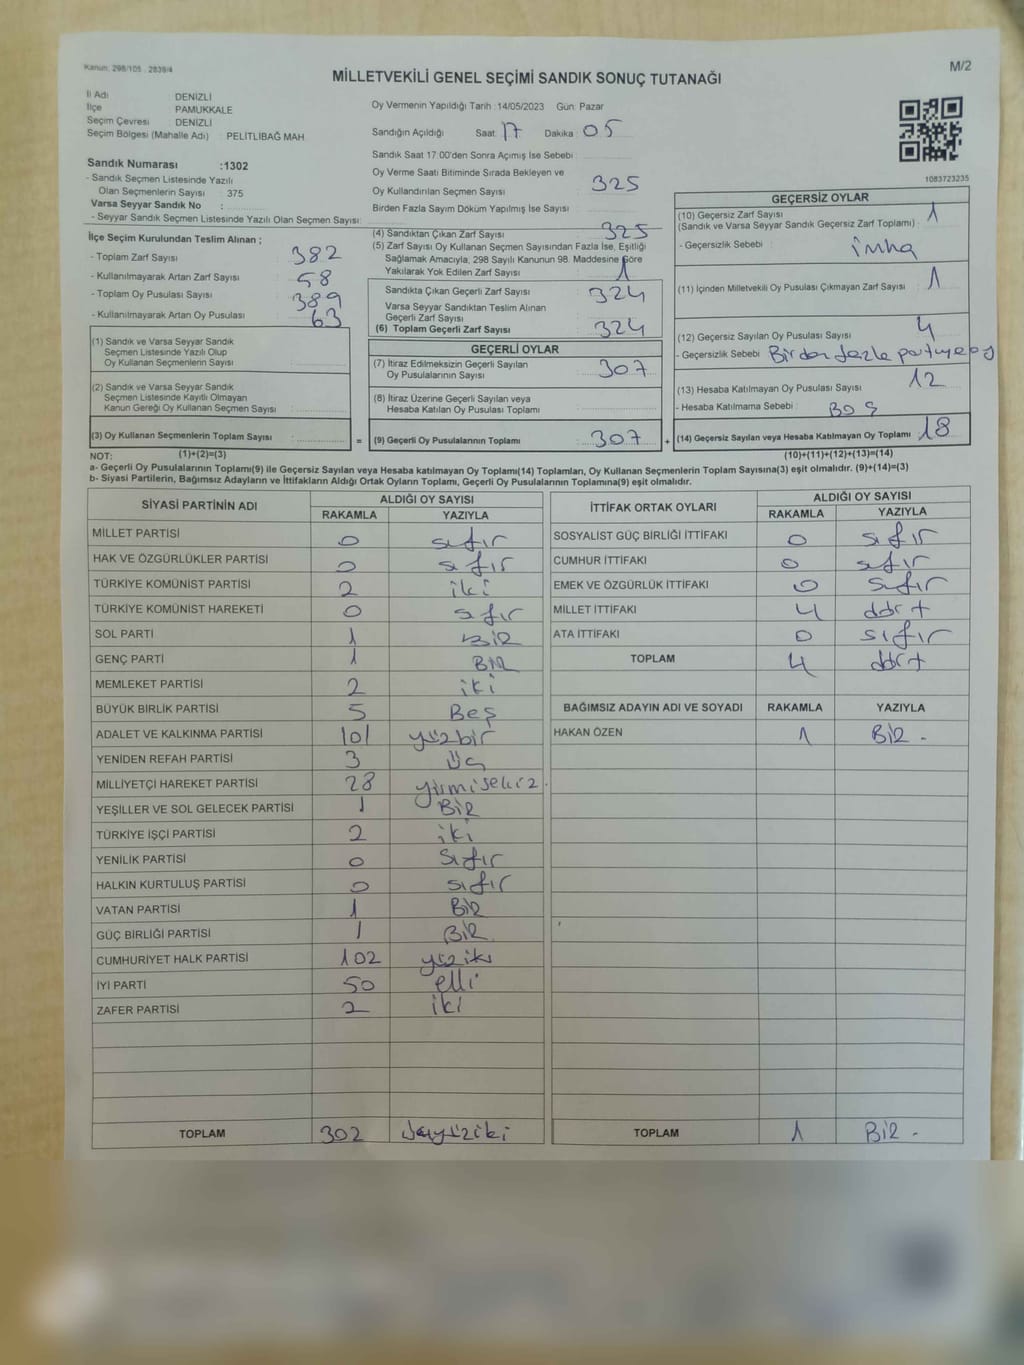 Kanun: 298/105 . 2839/4
M/2
MİLLETVEKİLİ GENEL SEÇİMİ SANDIK SONUÇ TUTANAĞI
İl Adı : DENİZLİ
İlçe : PAMUKKALE
Seçim Çevresi : DENİZLİ
Seçim Bölgesi (Mahalle Adı) : PELİTLİBAĞ MAH.
Sandık Numarası :1302
- Sandık Seçmen Listesinde Yazılı
Olan Seçmenlerin Sayısı : 375
Varsa Seyyar Sandık No :
- Seyyar Sandık Seçmen Listesinde Yazılı Olan Seçmen Sayısı:
İlçe Seçim Kurulundan Teslim Alınan ;
- Toplam Zarf Sayısı 382
- Kullanılmayarak Artan Zarf Sayısı 58
- Toplam Oy Pusulası Sayısı 389
- Kullanılmayarak Artan Oy Pusulası 63
(1) Sandık ve Varsa Seyyar Sandık
Seçmen Listesinde Yazılı Olup
Oy Kullanan Seçmenlerin Sayısı
(2) Sandık ve Varsa Seyyar Sandık
Seçmen Listesinde Kayıtlı Olmayan
Kanun Gereği Oy Kullanan Seçmen Sayısı
(3) Oy Kullanan Seçmenlerin Toplam Sayısı :
Oy Vermenin Yapıldığı Tarih :14/05/2023 Gün: Pazar
Sandığın Açıldığı Saat: 17 Dakika : 05
Sandık Saat 17:00'den Sonra Açılmış İse Sebebi :
Oy Verme Saati Bitiminde Sırada Bekleyen ve
Oy Kullandırılan Seçmen Sayısı : 325
Birden Fazla Sayım Döküm Yapılmış İse Sayısı
(4) Sandıktan Çıkan Zarf Sayısı 325
(5) Zarf Sayısı Oy Kullanan Seçmen Sayısından Fazla İse, Eşitliği
Sağlamak Amacıyla, 298 Sayılı Kanunun 98. Maddesine Göre
Yakılarak Yok Edilen Zarf Sayısı 1
Sandıkta Çıkan Geçerli Zarf Sayısı 324
Varsa Seyyar Sandıktan Teslim Alınan
Geçerli Zarf Sayısı
(6) Toplam Geçerli Zarf Sayısı 324
GEÇERLİ OYLAR
(7) İtiraz Edilmeksizin Geçerli Sayılan
Oy Pusulalarının Sayısı 307
(8) İtiraz Üzerine Geçerli Sayılan veya
Hesaba Katılan Oy Pusulası Toplamı
= (9) Geçerli Oy Pusulalarının Toplamı : 307
1083723235
GEÇERSİZ OYLAR
(10) Geçersiz Zarf Sayısı 1
(Sandık ve Varsa Seyyar Sandık Geçersiz Zarf Toplamı)
- Geçersizlik Sebebi : imha
(11) İçinden Milletvekili Oy Pusulası Çıkmayan Zarf Sayısı 1
(12) Geçersiz Sayılan Oy Pusulası Sayısı 4
- Geçersizlik Sebebi : Birden fazla partiye oy
(13) Hesaba Katılmayan Oy Pusulası Sayısı 12
- Hesaba Katılmama Sebebi : BOŞ
+ (14) Geçersiz Sayılan veya Hesaba Katılmayan Oy Toplamı 18
NOT: (1)+(2)=(3) (10)+(11)+(12)+(13)=(14)
a- Geçerli Oy Pusulalarının Toplamı(9) ile Geçersiz Sayılan veya Hesaba katılmayan Oy Toplamı(14) Toplamları, Oy Kullanan Seçmenlerin Toplam Sayısına(3) eşit olmalıdır. (9)+(14)=(3)
b- Siyasi Partilerin, Bağımsız Adayların ve İttifakların Aldığı Ortak Oyların Toplamı, Geçerli Oy Pusulalarının Toplamına(9) eşit olmalıdır.
SİYASİ PARTİNİN ADI ALDIĞI OY SAYISI
RAKAMLA YAZIYLA
MİLLET PARTİSİ 0 sıfır
HAK VE ÖZGÜRLÜKLER PARTİSİ 0 sıfır
TÜRKİYE KOMÜNİST PARTİSİ 2 iki
TÜRKİYE KOMÜNİST HAREKETİ 0 sıfır
SOL PARTİ 1 BİR
GENÇ PARTİ 1 BİR
MEMLEKET PARTİSİ 2 iki
BÜYÜK BİRLİK PARTİSİ 5 Beş
ADALET VE KALKINMA PARTİSİ 101 yüzbir
YENİDEN REFAH PARTİSİ 3 üç
MİLLİYETÇİ HAREKET PARTİSİ 28 yirmisekiz.
YEŞİLLER VE SOL GELECEK PARTİSİ 1 BİR
TÜRKİYE İŞÇİ PARTİSİ 2 iki
YENİLİK PARTİSİ 0 Sıfır
HALKIN KURTULUŞ PARTİSİ 0 sıfır
VATAN PARTİSİ 1 BİR
GÜÇ BİRLİĞİ PARTİSİ 1 BİR
CUMHURİYET HALK PARTİSİ 102 yüziki
İYİ PARTİ 50 elli
ZAFER PARTİSİ 2 iki
TOPLAM 302 üçyüziki
İTTİFAK ORTAK OYLARI ALDIĞI OY SAYISI
RAKAMLA YAZIYLA
SOSYALİST GÜÇ BİRLİĞİ İTTİFAKI 0 sıfır
CUMHUR İTTİFAKI 0 sıfır
EMEK VE ÖZGÜRLÜK İTTİFAKI 0 sıfır
MİLLET İTTİFAKI 4 dört
ATA İTTİFAKI 0 sıfır
TOPLAM 4 dört
BAĞIMSIZ ADAYIN ADI VE SOYADI RAKAMLA YAZIYLA
HAKAN ÖZEN 1 BİR .
TOPLAM 1 BİR .